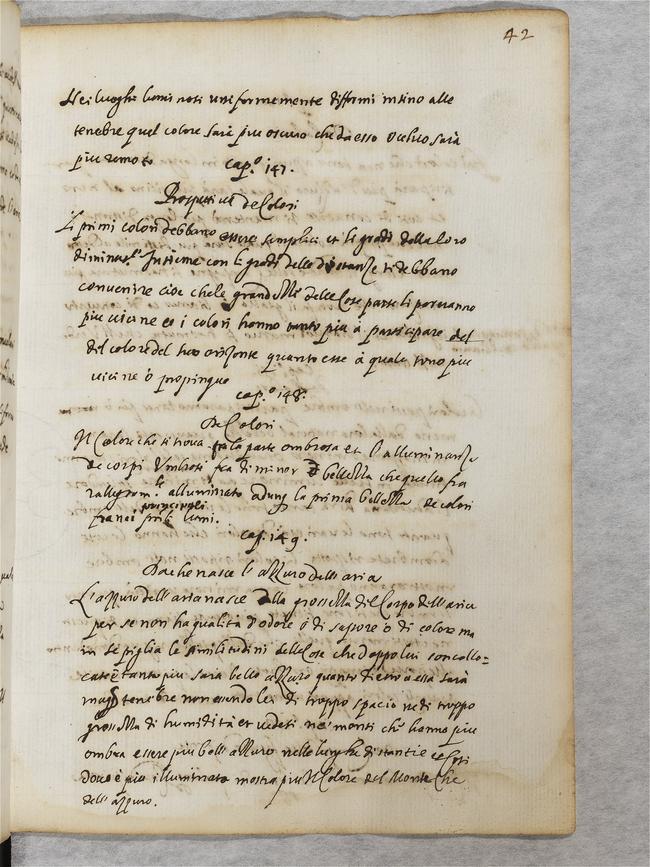 42
Nei luoghi luminosi uniformemente difformi insino alle
tenebre quel colore sarà piu oscuro che da esso ochio sarà
piu remoto
cap.º 147.
Prospettiva de Colori
Li primi colori debbano essere semplici et li gradi della loro
diminut.ne Insieme con li gradi delle distanze si debbano
convenire cioe che le grandezze delle Cose
piu vicine et i colori hanno tanto piu à participare del
del colore del suo orizonte quanto esse à quale sono piu
vicine ò propinque
cap.º 148.
De Colori
Il Colore che si trova fra la parte ombrosa et l'alluminata
de corpi Umbrosi fia di minor bellezza che quello fia
alluminato adunq la prima bellezza de colori
fia nei principali lumi.
cap. 149.
Da che nasce l'azzuro dell'aria
L'azzuro dell'aria nasce dalla grossezza del Corpo dell'aria
per se non ha qualità d'odore ò di sapore ò di colore ma
in se piglia le similitudini delle Cose che doppo lei son collo=
cate e tanto piu sarà bello azzuro quanto dietro à essa sarà
magg tenebre non essendo lei di troppo spacio ne di troppo
grossezza di humidità et vedesi ne' monti che hanno piu
ombra essere piu bell' azzuro nelle lunghe distantie et cosi
Dove è piu illuminato mostra piu Il Colore del Monte che
dell' azzuro.